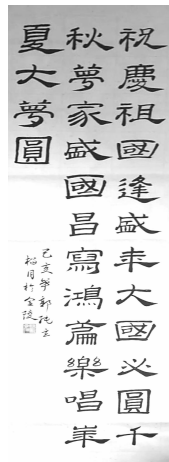 祝慶祖國逢盛来大國必圓千
秋夢家盛國昌寫鴻篇樂唱華
夏大夢圓
己亥年郭
榴月於金陵